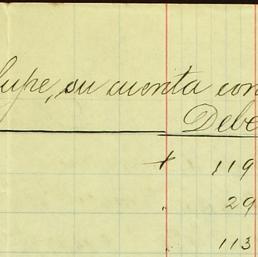 lupe, su cuenta con
Debe
+ 119
29
113